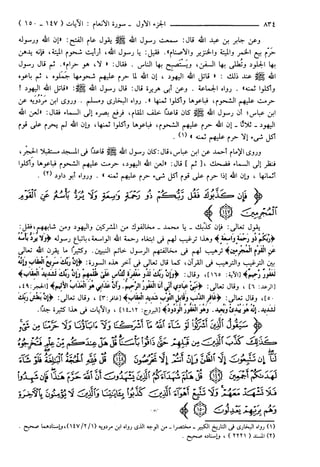 ٨٣٤ الجزء الأول - سورة الأنعام : الآيات ( ١٤٧ - ١٥٠ )
وعن جابر بن عبد الله قال: سمعت رسول الله ﷺ يقول عام الفتح: «إن الله ورسوله
حرّم بيع الخمر والميتة والخنزير والأصنام». فقيل: يا رسول الله، أرأيت شحوم الميتة، فإنه يدهن
بها الجلود وتُطلى بها السفن، ويَستصبح بها الناس. فقال: « لا، هو حرام». ثم قال رسول
الله ﷺ عند ذلك : « قاتل الله اليهود ، إن الله لما حرم عليهم شحومها جملوه ، ثم باعوه
وأكلوا ثمنه» . رواه الجماعة . وعن أبي هريرة قال: قال رسول الله ﷺ: «قاتل الله اليهود !
حرمت عليهم الشحوم، فباعوها وأكلوا ثمنها ». رواه البخاري ومسلم . وروى ابن مردويه عن
ابن عباس: أن رسول الله ﷺ كان قاعداً خلف المقام، فرفع بصره إلى السماء فقال: «لعن الله
اليهود - ثلاثاً - إن الله حرم عليهم الشحوم، فباعوها وأكلوا ثمنها، وإن الله لم يحرم على قوم
أكل شيء إلا حرم عليهم ثمنه » (١) .
وروى الإمام أحمد عن ابن عباس،قال:كان رسول الله ﷺ قاعداً في المسجد مستقبلا الحِجْر،
فنظر إلى السماء فضحك، [ ثم ] قال: «لعن الله اليهود، حرمت عليهم الشحوم فباعوها وأكلوا
أثمانها ، وإن الله إذا حرم على قوم أكل شيء حرم عليهم ثمنه » . ورواه أبو داود (٢) .
﴿ فَإِن كَذَّبُوكَ فَقُل رَّبُّكُمْ ذُو رَحْمَةٍ وَاسِعَةٍ وَلَا يُرَدُّ بَأْسُهُ عَنِ الْقَوْمِ
الْمُجْرِمِينَ ﴾
يقول تعالى: فإن كذبك ـ يا محمد ـ مخالفوك من المشركين واليهود ومن شابههم،فقل:
﴿رَبُّكُمْ ذُو رَحْمَةٍ وَاسِعَةٍ﴾ وهذا ترغيب لهم في ابتغاء رحمة الله الواسعة،باتباع رسوله ﴿وَلَا يُرَدُّ بَأْسُهُ
عَنِ الْقَوْمِ الْمُجْرِمِينَ﴾ ترهيب لهم في مخالفتهم الرسول خاتم النبيين. وكثيراً ما يقرن الله تعالى
بين الترغيب والترهيب في القرآن، كما قال تعالى في آخر هذه السورة: ﴿إِنَّ رَبَّكَ سَرِيعُ الْعِقَابِ وَإِنَّهُ
لَغَفُورٌ رَّحِيمٌ﴾ (الآية: ١٦٥)، وقال: ﴿وَإِنَّ رَبَّكَ لَذُو مَغْفِرَةٍ لِّلنَّاسِ عَلَىٰ ظُلْمِهِمْ وَإِنَّ رَبَّكَ لَشَدِيدُ الْعِقَابِ﴾
(الرعد: ٦) ، وقال تعالى: ﴿نَبِّئْ عِبَادِي أَنِّي أَنَا الْغَفُورُ الرَّحِيمُ . وَأَنَّ عَذَابِي هُوَ الْعَذَابُ الْأَلِيمُ﴾ (الحجر: ٤٩،
٥٠)، وقال تعالى: ﴿غَافِرِ الذَّنبِ وَقَابِلِ التَّوْبِ شَدِيدِ الْعِقَابِ﴾ (غافر: ٣) ، وقال تعالى: ﴿إِنَّ بَطْشَ رَبِّكَ
لَشَدِيدٌ . إِنَّهُ هُوَ يُبْدِئُ وَيُعِيدُ . وَهُوَ الْغَفُورُ الْوَدُودُ﴾ (البروج: ١٢ـ١٤) ، والآيات في هذا كثيرة جداً.
﴿ سَيَقُولُ الَّذِينَ أَشْرَكُوا لَوْ شَاءَ اللَّهُ مَا أَشْرَكْنَا وَلَا آبَاؤُنَا وَلَا حَرَّمْنَا مِن
شَيْءٍ كَذَٰلِكَ كَذَّبَ الَّذِينَ مِن قَبْلِهِمْ حَتَّىٰ ذَاقُوا بَأْسَنَا قُلْ هَلْ عِندَكُم مِّنْ عِلْمٍ فَتُخْرِجُوهُ
لَنَا إِن تَتَّبِعُونَ إِلَّا الظَّنَّ وَإِنْ أَنتُمْ إِلَّا تَخْرُصُونَ ۝ قُلْ فَلِلَّهِ الْحُجَّةُ الْبَالِغَةُ فَلَوْ شَاءَ
لَهَدَاكُمْ أَجْمَعِينَ ۝ قُلْ هَلُمَّ شُهَدَاءَكُمُ الَّذِينَ يَشْهَدُونَ أَنَّ اللَّهَ حَرَّمَ هَٰذَا فَإِن شَهِدُوا
فَلَا تَشْهَدْ مَعَهُمْ وَلَا تَتَّبِعْ أَهْوَاءَ الَّذِينَ كَذَّبُوا بِآيَاتِنَا وَالَّذِينَ لَا يُؤْمِنُونَ بِالْآخِرَةِ
وَهُم بِرَبِّهِمْ يَعْدِلُونَ ۝ ﴾
(١) رواه البخاري في التاريخ الكبير ـ مختصراً ـ من الوجه الذي رواه ابن مردويه (١٤٧/٢/١)،وإسنادهما صحيح .
(٢) المسند ( ٢٢٢١ ) ، وإسناده صحيح .